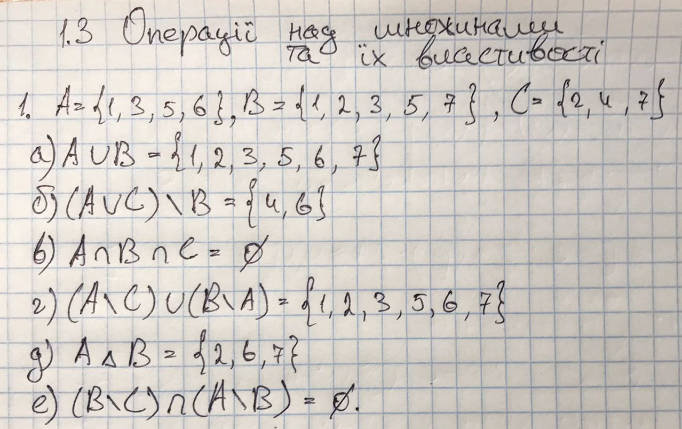 1.3 Операції над множинами
та їх властивості
1. A = {1, 3, 5, 6}, B = {1, 2, 3, 5, 7}, C = {2, 4, 7}
а) A ∪ B = {1, 2, 3, 5, 6, 7}
б) (A ∪ C) \ B = {4, 6}
в) A ∩ B ∩ C = ∅
г) (A \ C) ∪ (B \ A) = {1, 2, 3, 5, 6, 7}
д) A Δ B = {2, 6, 7}
е) (B \ C) ∩ (A \ B) = ∅.